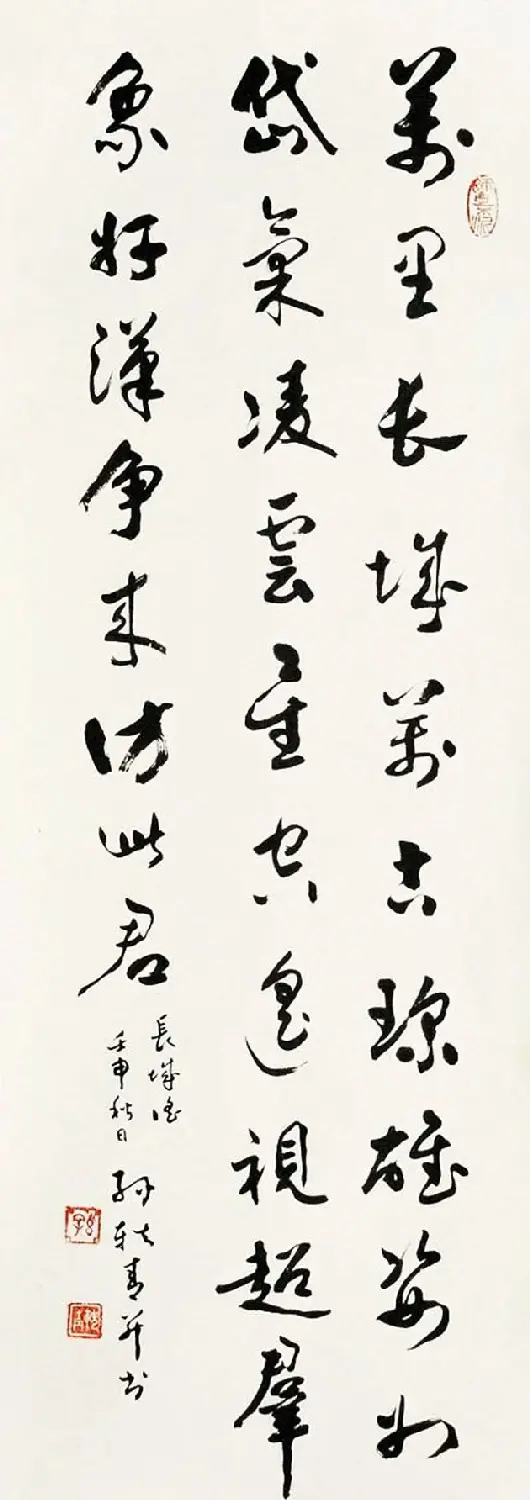 萬里長城萬古珍雄姿如
岱氣凌雲星空遙視超羣
象好漢爭來訪此君
長城
壬申秋日
孫軼青并书